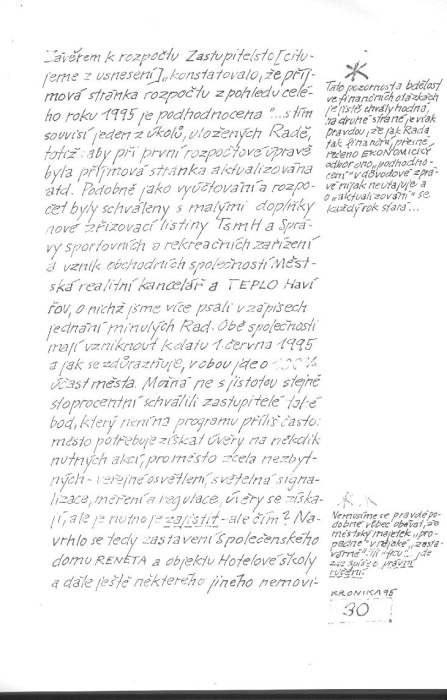 Závěrem k rozpočtu Zastupitelstvo [citu-
jeme z usnesení] „konstatovalo, že příj-
mová stránka rozpočtu z pohledu celé-
ho roku 1995 je podhodnocena"... s tím
souvisí jeden z úkolů, uložených Radě,
totiž: aby při první rozpočtové úpravě
byla příjmová stránka aktualizována
atd. Podobně jako vyúčtování a rozpo-
čet byly schváleny s malými doplňky
nové zřizovací listiny TsmH a Sprá-
vy sportovních a rekreačních zařízení
a vznik obchodních společností Měst-
ská realitní kancelář a TEPLO Haví
řov, o nichž jsme více psali v zápisech
jednání minulých Rad. Obě společnosti
mají vzniknout k datu 1. června 1995
a jak se zdůrazňuje, v obou jde o 100%
účast města. Možná ne s jistotou stejně
stoprocentní schválili zastupitelé také
bod, který není na programu příliš často:
město potřebuje získat úvěry na několik
nutných akcí, pro město zcela nezbyt-
ných - veřejné osvětlení, světelná signa-
lizace, měření a regulace, úvěry se získa-
jí, ale je nutno je zajistit - ale čím? Na-
vrhlo se tedy zastavení společenského
domu RENETA a objektu Hotelové školy
a dále ještě některého jiného nemovi-
*
Tato pozornost a bdělost
ve finančních otázkách
je jistě chvályhodná,
na druhé straně je však
pravdou, že jak Rada,
tak finanční, přesně
řečeno EKONOMICKÝ
odbor ono „podhodno-
cení" v důvodové zprá-
vě nijak neutajuje a
o „aktualizování" se
každý rok stará...
**
Nemusíme se pravděpo-
dobně vůbec obávat, že
městský majetek „pro-
padne" v nějaké „zasta-
várně"
jde
spíše o právní
ručení.
KRONIKA 95
30